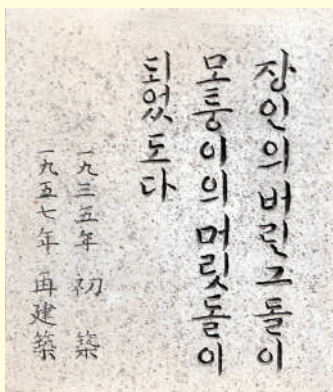 장인의 버린 그 돌이
모퉁이의 머릿돌이
되었도다
一九三五年 初築
一九五七年 再建築